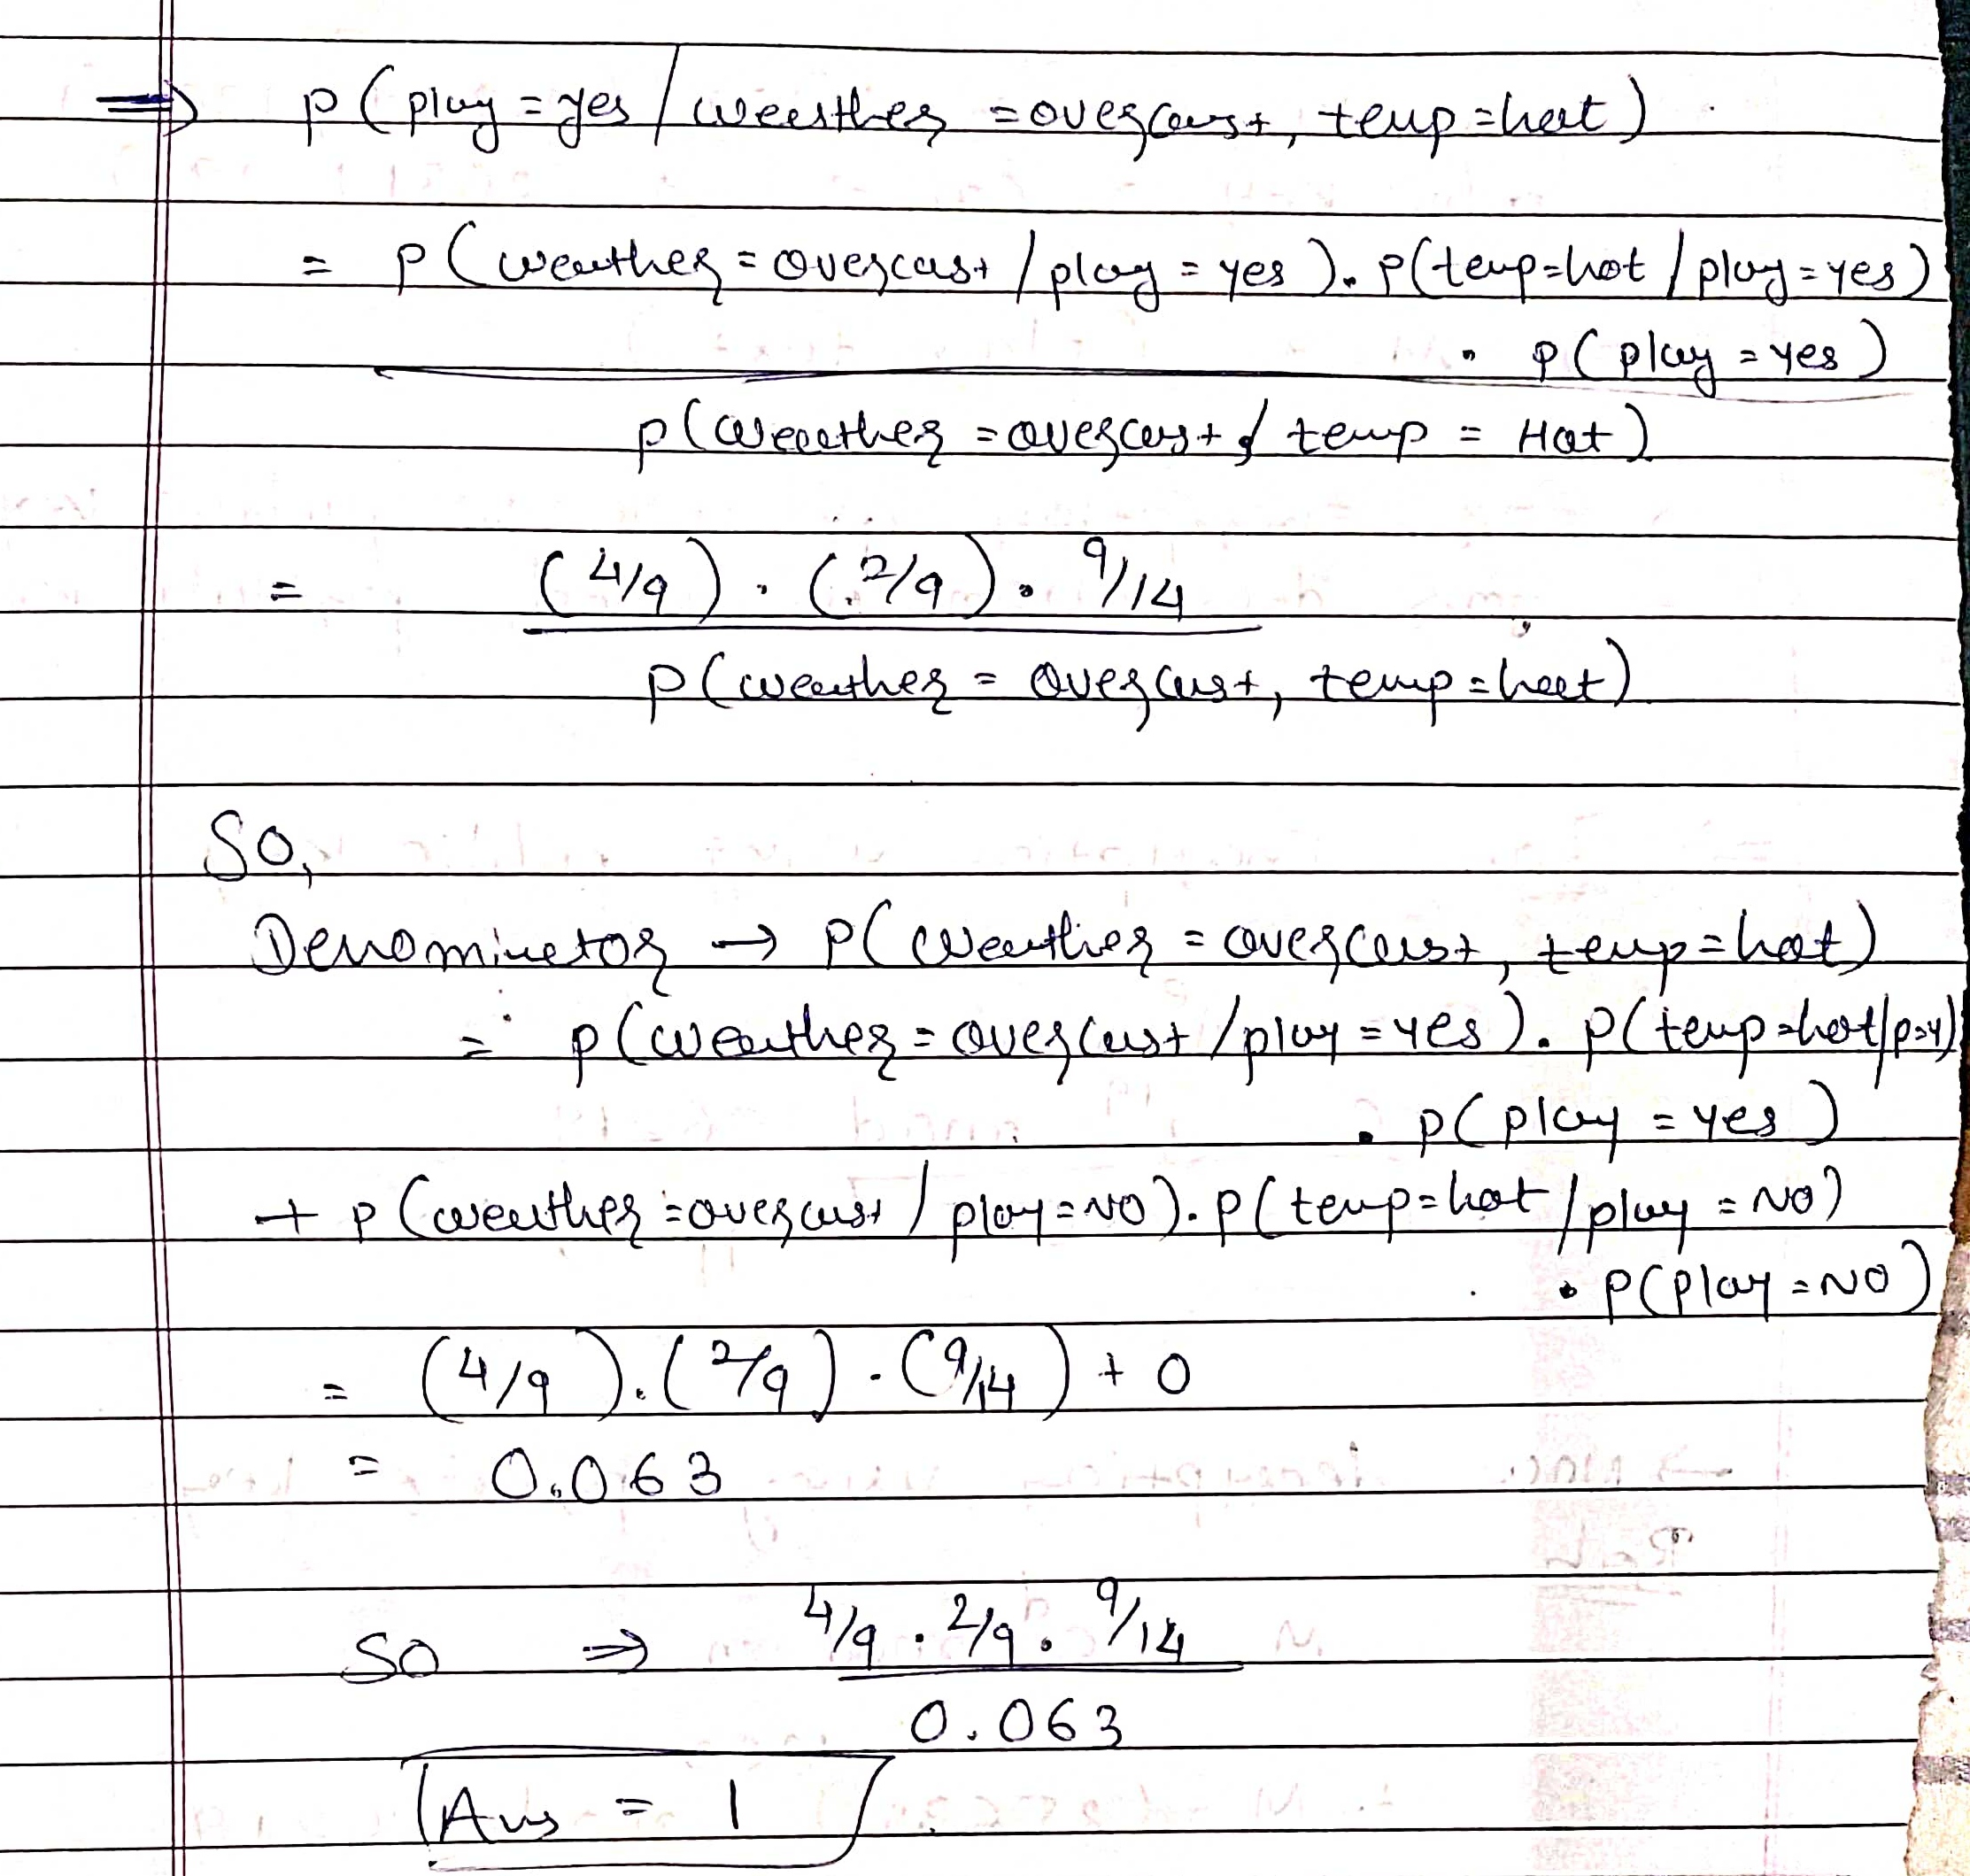 ⇒ P(play = yes / weather = overcast, temp = hot)
= P(weather = overcast / play = yes). P(temp=hot / play = yes)
. P(play = yes)
P(weather = overcast, temp = Hot)
= (4/9) . (2/9) . 9/14
P(weather = overcast, temp = hot)
So,
Denominator → P(weather = overcast, temp = hot)
= P(weather = overcast / play = yes). P(temp = hot/p=y)
. P(play = yes)
+ P(weather = overcast / play = NO). P(temp = hot / play = NO)
. P(play = NO)
= (4/9).(2/9).(9/14) + 0
= 0.063
SO ⇒ 4/9 . 2/9 . 9/14
0.063
Ans = 1